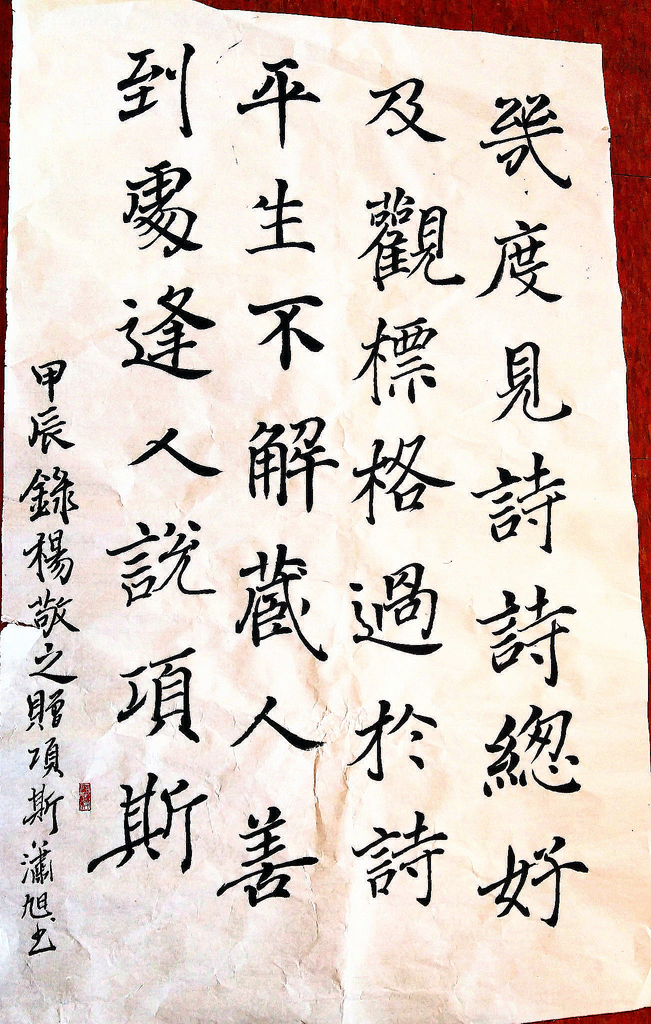 幾度見詩詩總好
及觀標格過於詩
平生不解藏人善
到處逢人說項斯
甲辰錄楊敬之贈項斯瀟旭書